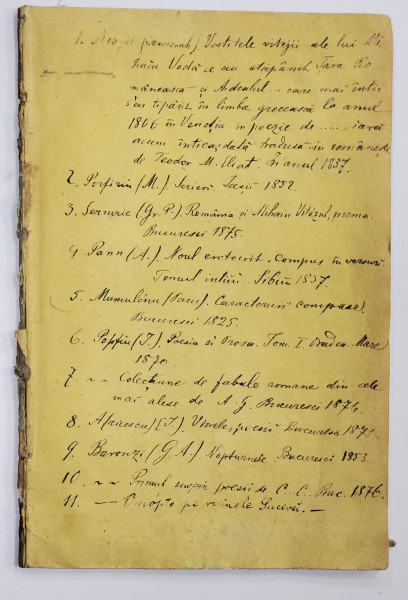 1. (personah). Vestitele vitejii ale lui Mi
haiu Vodă ce au stăpânit Țara Ro
mânească și Ardealul .. care mai întîi
s'au tipărit în limba grecească la anul
1806 în Veneția în poezie de ..... iară
acum întîeași dată tradusă în românește
de Teodor M. Eliat. în anul 1837.
2. Porfiriu (M.). Scrieri. Iașii 1852.
3. Serurie (Gr. P.). România și Mihaiu Viteazul, poema.
Bucuresci 1875.
4. Pann (A.). Noul erotocrit. Compus în versuri
Tomul întîiu. Sibiiu 1837.
5. Mumulénu (Paris). Caracteruri
Bucuresci 1825.
6. Popfiu (I.). Poesia si Prosa. Tom. I. Oradea-Mare
1870.
7. ~ ~ Colecțiune de fabule romane din cele
mai alese de A. G. Bucuresci 1874.
8. (I.). Viorele, poesii Bucuresci
9. Baronzi (G. A.) Nopturnele. Bucuresci 1853.
10. ~ ~ Primul poesii de C.. C.. Buc. 1876.
11. — O nópte pe ruinele Sucevei. —